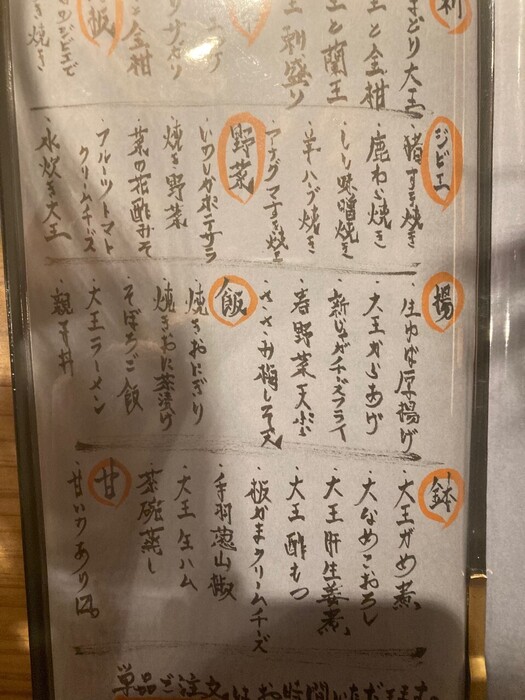 刺
まどり大王
王と金柑
王と蘭王
王刺盛り
板
と金柑
ジビエで
き焼き
ジビエ
・猪すき焼き
・鹿わさ焼き
・しし味噌焼き
・羊ハブ焼き
・アナグマすき焼き
野菜
・焼き野菜
・菜の花酢みそ
・フルーツトマト
クリームチーズ
・水炊き大王
揚
・生ゆば厚揚げ
・大王からあげ
・新じゃがチーズフライ
・春野菜天ぷら
・ささみ梅しそ天
飯
・焼きおにぎり
・焼きおに茶漬け
・そぼろご飯
・大王ラーメン
・親子丼
鉢
・大王がめ煮
・大なめこおろし
・大王肝生姜煮
・大王酢もつ
・板かまクリームチーズ
・手羽葱山椒
・大王生ハム
・茶碗蒸し
甘
・甘いのあり〼
単品ご注文はお時間いただ